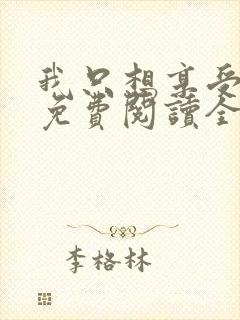 我只想享受
免費閱讀全
李格林